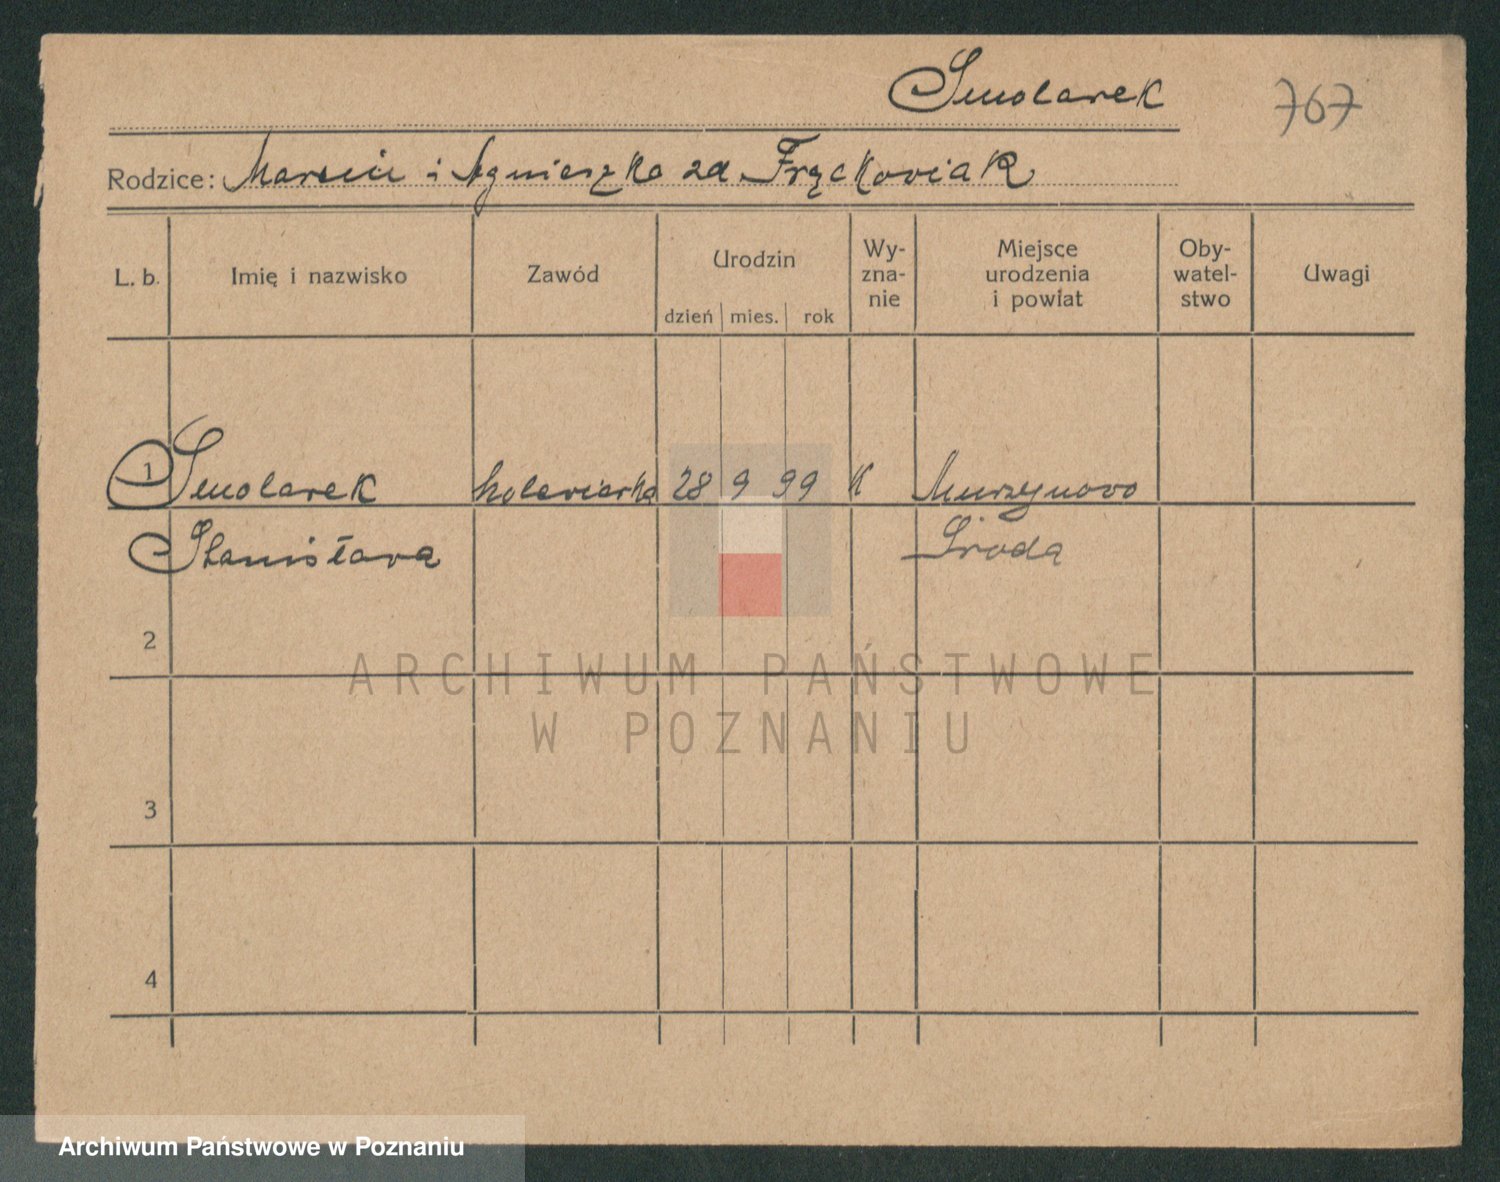 Smolarek
767
Rodzice: Marcin i Agnieszka zd Frąckowiak
L. b. Imię i nazwisko Zawód Urodzin dzień mies. rok Wy-zna-nie Miejsce urodzenia i powiat Oby-watel-stwo Uwagi
1 Smolarek 28 9 99 K Murzynowo
Stanisława Środa
2
3
4
ARCHIWUM PAŃSTWOWE
W POZNANIU
Archiwum Państwowe w Poznaniu